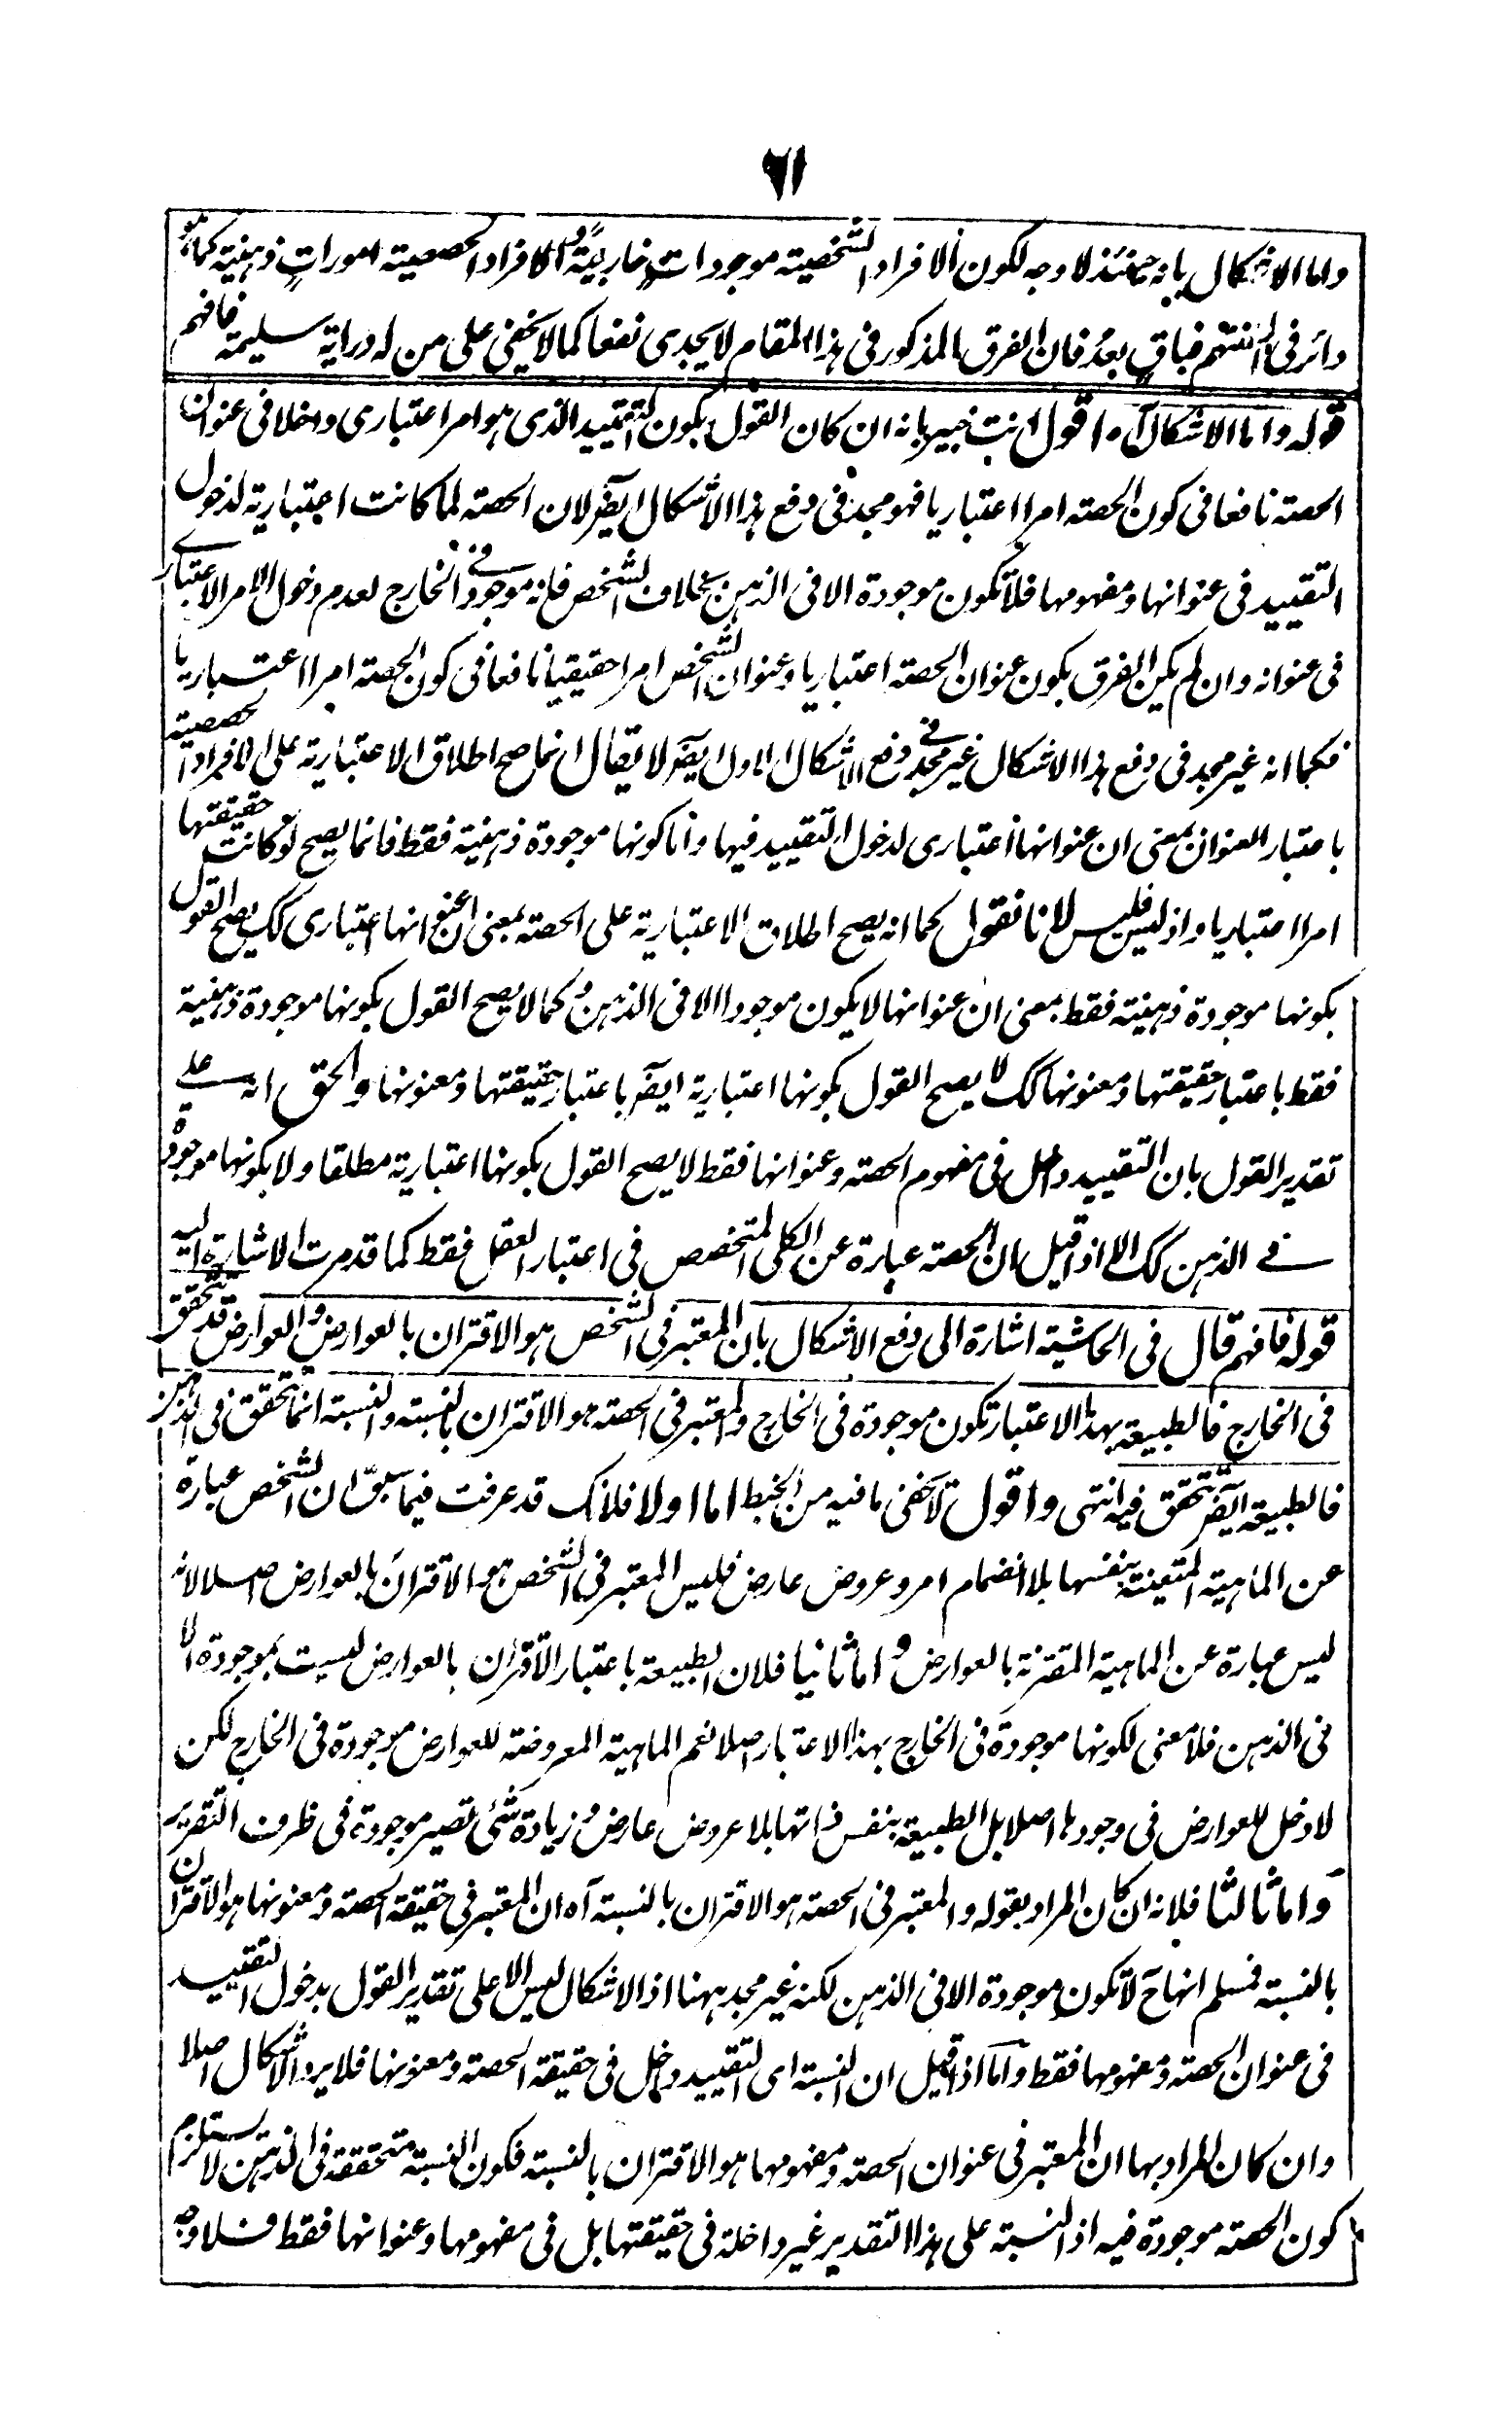 ٦١
واما الاشكال بانه حينئذ لا وجه لكون الافراد الشخصية موجودات خارجية والافراد الحصصية امورات ذهنية كما هو
دائر فى السنتهم فباقٍ بعدُ فان الفرق المذكور فى هذا المقام لا يجدى نفعا كما لا يخفى على من له دراية سليمة فافهم
قوله واما الاشكال آه اقول انت خبير بانه ان كان القول بكون التقييد الذى هو امر اعتبارى داخلا فى عنوان
الحصة نافعا فى كون الحصة امرا اعتباريا فهو مجد فى دفع هذا الاشكال ايضً لان الحصة لما كانت اعتبارية لدخول
التقييد فى عنوانها ومفهومها فلا تكون موجودة الا فى الذهن بخلاف الشخص فانه موجود فى الخارج لعدم دخول الامر الاعتبارى
فى عنوانه وان لم يكن الفرق بكون عنوان الحصة اعتباريا وعنوان الشخص امرا حقيقيا نافعا فى كون الحصة امرا اعتباريا
فكما انه غير مجد فى دفع هذا الاشكال غير مجد فى دفع الاشكال الاول ايضً لا يقال انما صح اطلاق الاعتبارية على الافراد الحصصية
باعتبار العنوان بمعنى ان عنوانها اعتبارى لدخول التقييد فيها واما كونها موجودة ذهنية فقط فانما يصح لو كانت حقيقتها
امرا اعتباريا واذ ليس فليس لانا نقول كما انه يصح اطلاق الاعتبارية على الحصة بمعنى ان عنوانها اعتبارى كك يصح القول
بكونها موجودة ذهنية فقط بمعنى ان عنوانها لا يكون موجودا الا فى الذهن وكما لا يصح القول بكونها موجودة ذهنية
فقط باعتبار حقيقتها ومعنونها كك لا يصح القول بكونها اعتبارية ايضً باعتبار حقيقتها ومعنونها والحق انه على
تقدير القول بان التقييد داخل فى مفهوم الحصة وعنوانها فقط لا يصح القول بكونها اعتبارية مطلقا ولا بكونها موجودة
فى الذهن كك الا اذا قيل ان الحصة عبارة عن الكلى المتخصص فى اعتبار العقل فقط كما قد مرت الاشارة اليه
قوله فافهم قال فى الحاشية اشارة الى دفع الاشكال بان المعتبر فى الشخص هو الاقتران بالعوارض والعوارض قد تتحقق
فى الخارج فالطبيعة بهذا الاعتبار تكون موجودة فى الخارج والمعتبر فى الحصة هو الاقتران بالنسبة والنسبة انما تتحقق فى الذهن
فالطبيعة ايضً تتحقق فيه انتهى واقول لا يخفى ما فيه من الخبط اما اولا فلانك قد عرفت فيما سبق ان الشخص عبارة
عن الماهية المتعينة بنفسها بلا انضمام امر وعروض عارض فليس المعتبر فى الشخص هو الاقتران بالعوارض اصلا لانه
ليس عبارة عن الماهية المقترنة بالعوارض واما ثانيا فلان الطبيعة باعتبار الاقتران بالعوارض ليست بموجودة الا
فى الذهن فلا معنى لكونها موجودة فى الخارج بهذا الاعتبار اصلا نعم الماهية المعروضة للعوارض موجودة فى الخارج لكن
لا دخل للعوارض فى وجودها اصلا بل الطبيعة بنفس ذاتها بلا عروض عارض وزيادة شئ تصير موجودة فى ظرف التقرير
واما ثالثا فلانه ان كان المراد بقوله والمعتبر فى الحصة هو الاقتران بالنسبة آه ان المعتبر فى حقيقة الحصة ومعنونها هو الاقتران
بالنسبة فمسلم انهاح لا تكون موجودة الا فى الذهن لكنه غير مجد ههنا اذ الاشكال ليس الا على تقدير القول بدخول التقييد
فى عنوان الحصة ومفهومها فقط واما اذا قيل ان النسبة اى التقييد داخل فى حقيقة الحصة ومعنونها فلا يرد الاشكال اصلا
وان كان المراد بها ان المعتبر فى عنوان الحصة ومفهومها هو الاقتران بالنسبة فكون النسبة متحققة فى الذهن لا يستلزم
كون الحصة موجودة فيه اذ النسبة على هذا التقدير غير داخلة فى حقيقتها بل فى مفهومها وعنوانها فقط فلا وجه